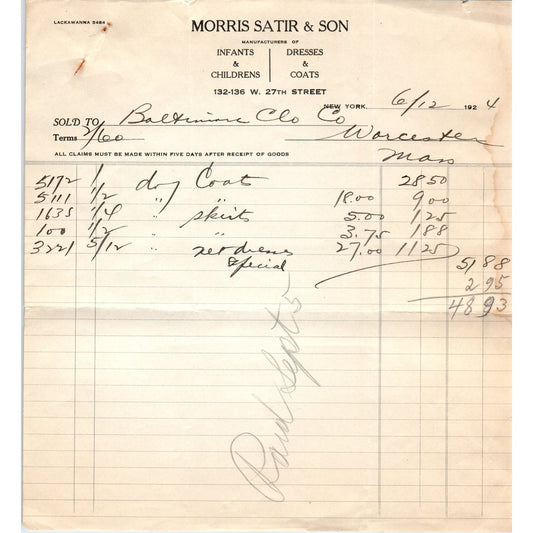 LACKAWANNA 5484
MORRIS SATIR & SON
MANUFACTURERS OF
INFANTS & CHILDRENS
DRESSES & COATS
132-136 W. 27TH STREET
NEW YORK, 6/12 1924
SOLD TO Baltimore Clo Co
Terms 2/60 Worcester
Mass
ALL CLAIMS MUST BE MADE WITHIN FIVE DAYS AFTER RECEIPT OF GOODS
5172 1/ doz Coats 28 50
5111 1/2 " " 18.00 9 00
1635 1/4 " skirts 5.00 1 25
100 1/2 " " 3.75 1 88
3221 5/12 " net dresses 27.00 11 25
special 51 88
2 95
48 93
Paid Sept 5